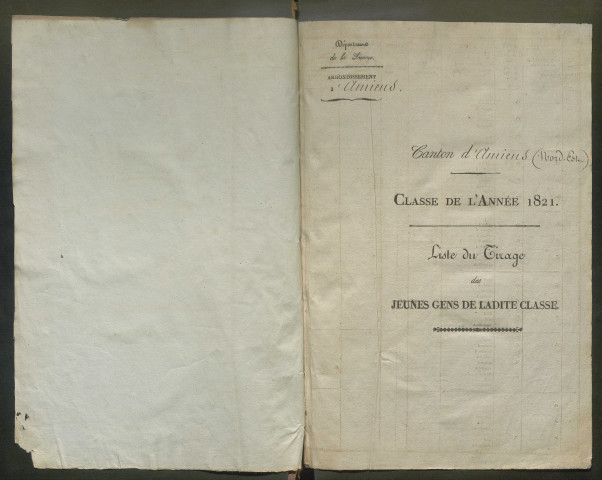 Département
de la Somme
ARRONDISSEMENT
d'Amiens.
Canton d'Amiens (Nord-Est)
CLASSE DE L'ANNÉE 1821.
Liste du Tirage
des
JEUNES GENS DE LADITE CLASSE.